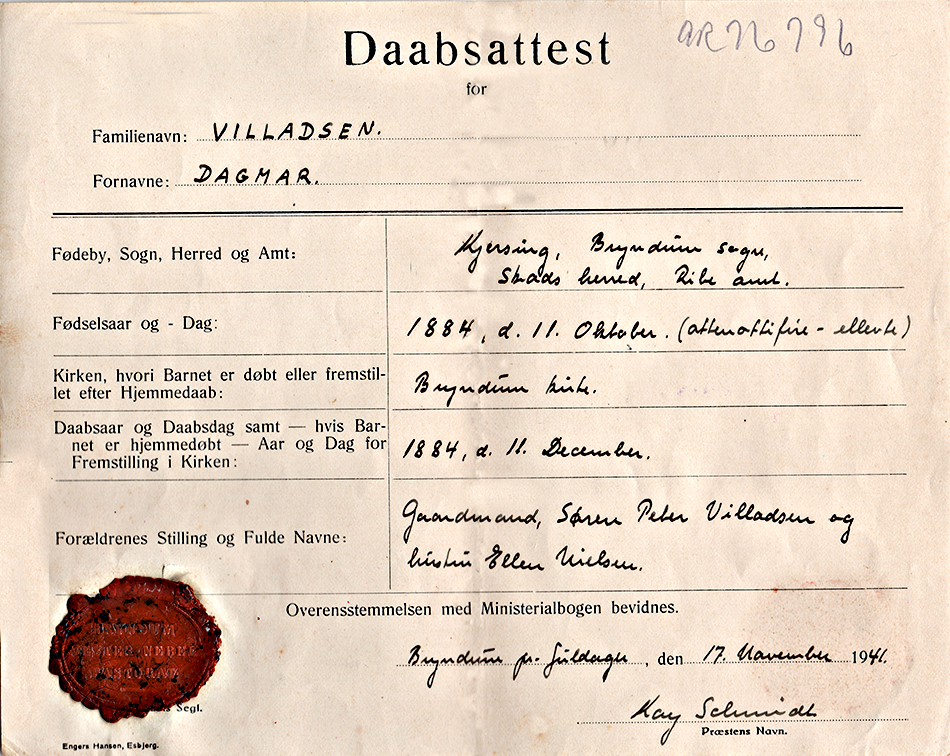 Daabsattest
AR 76 796
for
Familienavn: VILLADSEN.
Fornavne: DAGMAR.
Fødeby, Sogn, Herred og Amt:
Kjersing, Bryndum sogn,
Skads herred, Ribe amt.
Fødselsaar og - Dag:
1884, d. 11. Oktober. (attenottifire - ellevte)
Kirken, hvori Barnet er døbt eller fremstil-
let efter Hjemmedaab:
Bryndum kirke.
Daabsaar og Daabsdag samt — hvis Bar-
net er hjemmedøbt — Aar og Dag for
Fremstilling i Kirken:
1884, d. 11. December.
Forældrenes Stilling og Fulde Navne:
Gaardmand, Søren Peter Villadsen og
hustru Ellen Nielsen.
Overensstemmelsen med Ministerialbogen bevidnes.
Bryndum pr. Guldager, den 17. November 1941.
BRYNDUM
Segl.
Kay Schmidt
Præstens Navn.
Engers Hansen, Esbjerg.